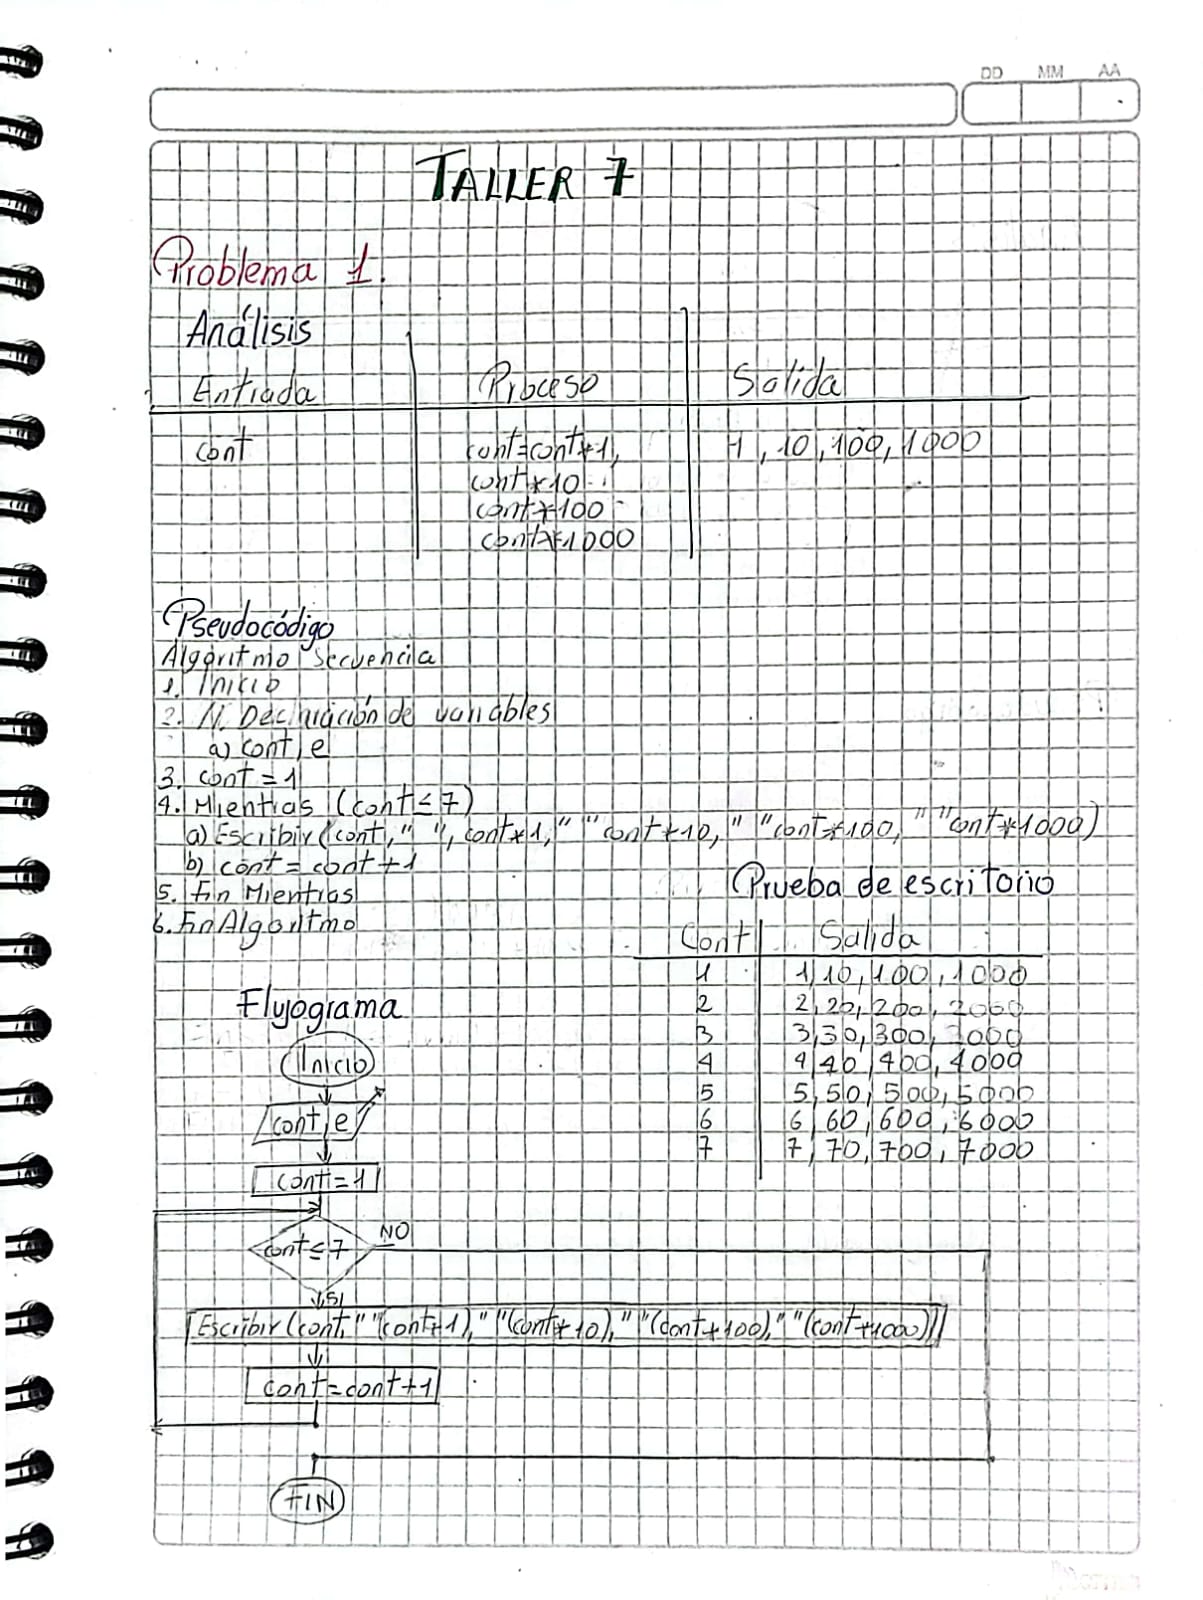 DD MM AA
TALLER 7
Problema 1.
Análisis
Entrada Proceso Salida
cont cont=cont*1, 1, 10, 100, 1000
cont*10
cont*100
cont*1000
Pseudocódigo
Algoritmo Secuencia
1. Inicio
2. Declaración de variables
a) cont, e
3. cont = 1
4. Mientras (cont ≤ 7)
a) Escribir (cont, " ", cont*1, " " cont*10, " " cont*100, " " cont*1000)
b) cont = cont + 1
5. Fin Mientras
6. Fin Algoritmo
Prueba de escritorio
Cont Salida
1 1, 10, 100, 1000
2 2, 20, 200, 2000
3 3, 30, 300, 3000
4 4, 40, 400, 4000
5 5, 50, 500, 5000
6 6, 60, 600, 6000
7 7, 70, 700, 7000
Flujograma
Inicio
cont, e
cont = 1
cont ≤ 7 NO
SI
Escribir (cont, " " (cont*1), " " (cont*10), " " (cont*100), " " (cont*1000))
cont = cont + 1
FIN